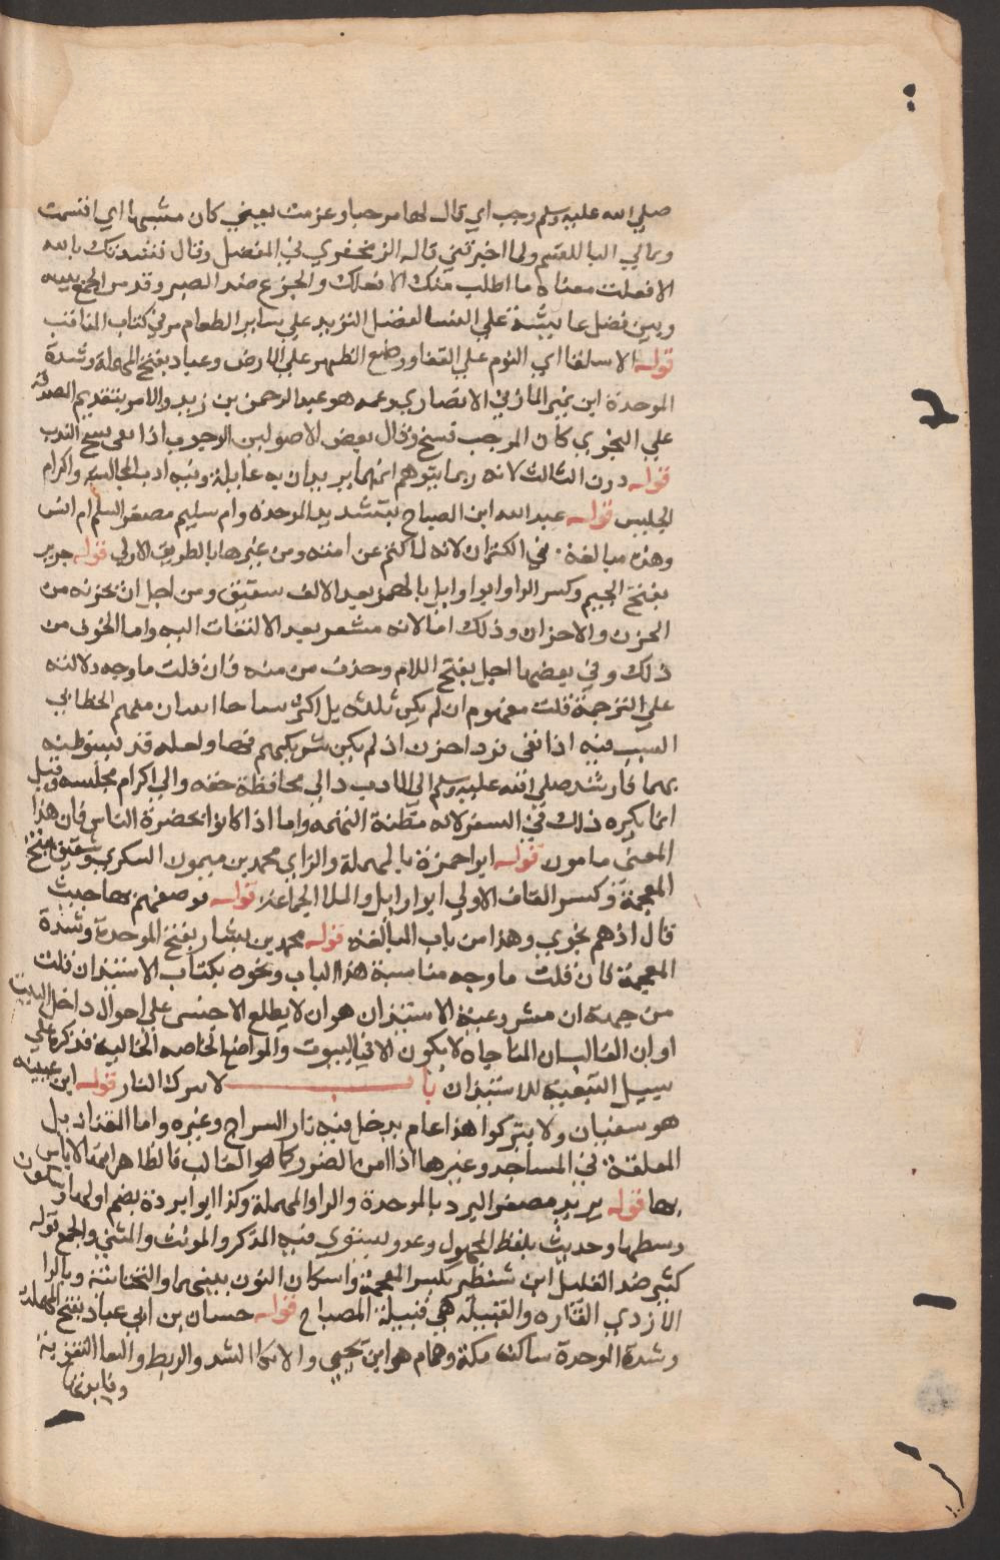 صلي الله عليه وسلم وجب اي قال لها مرحبا وعزمت بعيني كان مشيها اي اقسمت
وبمالي البا للقسم ولما اخبرتني قاله الزمخشري في المفصل وقال نشدتك بالله
الا فعلت معناه ما اطلب منك الا فعلك والجزع ضد الصبر وقد مر الجمع بينه
وبين فضل عايشة علي النسا لفضل الثريد علي ساير الطعام مر في كتاب المناقب
قوله الاستلقا اي النوم علي القفا ووضع الظهر علي الارض وعباد بفتح المهملة وشدة
الموحدة ابن تميم المازني الانصاري وعمه هو عبد الرحمن بن زيد والامر بتقديم الصدقة
علي النجوي كان للوجب نسخ وقال بعض الاصوليين الوجوب اذا نفي بقي الندب
قوله دون الثالث لانه ربما يتوهم انهما يريدان به غايلة وفيه ادب المجالسة واكرام
الجليس قوله عبد الله ابن الصباح بتشديد الموحدة وام سليم مصغر السلم ام انس
وهذه مبالغة في الكتمان لانه لما كتم عن امه ومن غيرها بالطريق الاولي قوله جرير
بفتح الجيم وكسر الرا وابو وايل بالهمز بعد الالف شقيق ومن اجل ان يحزنه من
الحزن والاحزان وذلك اما لانه مشعر بعد الالتفات اليه واما الخوف من
ذلك وفي بعضها اجل بفتح اللام وحذف من منه فان قلت ما وجه دلالته
علي الترجمة قلت مفهوم ان لم يكن ثلثة بل اكثر الخطابي
السبب فيه اذا نفي فرد احزن اذ لم يكن شريكهم فيها ولعله قد
بهما فارشد صلي الله عليه وسلم الي الادب والي محافظة حقه والي اكرام مجلسه وقيل
انما يكره ذلك في السفر لانه مظنة التهمة واما اذا كانوا بحضرة الناس فان هذا
المعني مامون قوله ابو حمزة بالمهملة والزاي محمد بن ميمون السكري وشقيق بفتح
المعجمة وكسر القاف الاولي ابو وايل والملا الجماعة قوله فوصفهم بها حيث
قال اذ هم نجوي وهذا من باب المبالغة قوله محمد بن بشار بفتح الموحدة وشدة
المعجمة فان قلت ما وجه مناسبة هذا الباب ونحوه بكتاب الاستيذان قلت
من جهة ان مشروعية الاستيذان هو ان لا يطلع الاجنبي علي احوال داخل البيت
او ان الغالب ان المناجاة لا يكون الا في البيوت والمواضع الخاصه الخاليه فذكره علي
سبيل التبعية للاستيذان باب لا تترك النار قوله ابن عيينه
هو سفيان ولا يتركوا هذا عام يدخل فيه نار السراج وغيره واما القناديل
المعلقة في المساجد وغيرها اذا امن الضرر كما هو الغالب فالظاهر انه لا باس
بها قوله بريد مصغر البرد بالموحدة والرا والمهملة وكذا ابو بردة بضم اولها وسكون
وسطها وحديث بلفظ المجهول وعدو يستوي فيه المذكر والمونث والمثني والجمع قوله
كثير ضد القليل ابن شنظير بكسر المعجمة واسكان النون بينهما والتحتانية وبالرا
الازدي الفاره والفتيلة هي فتيلة المصباح قوله حسان بن ابي عباد بفتح المهملة
وشدة الموحدة ساكنة مكة وهمام هو ابن يحيي والايكا الشد والربط والبقا التغذية
وفايدتها